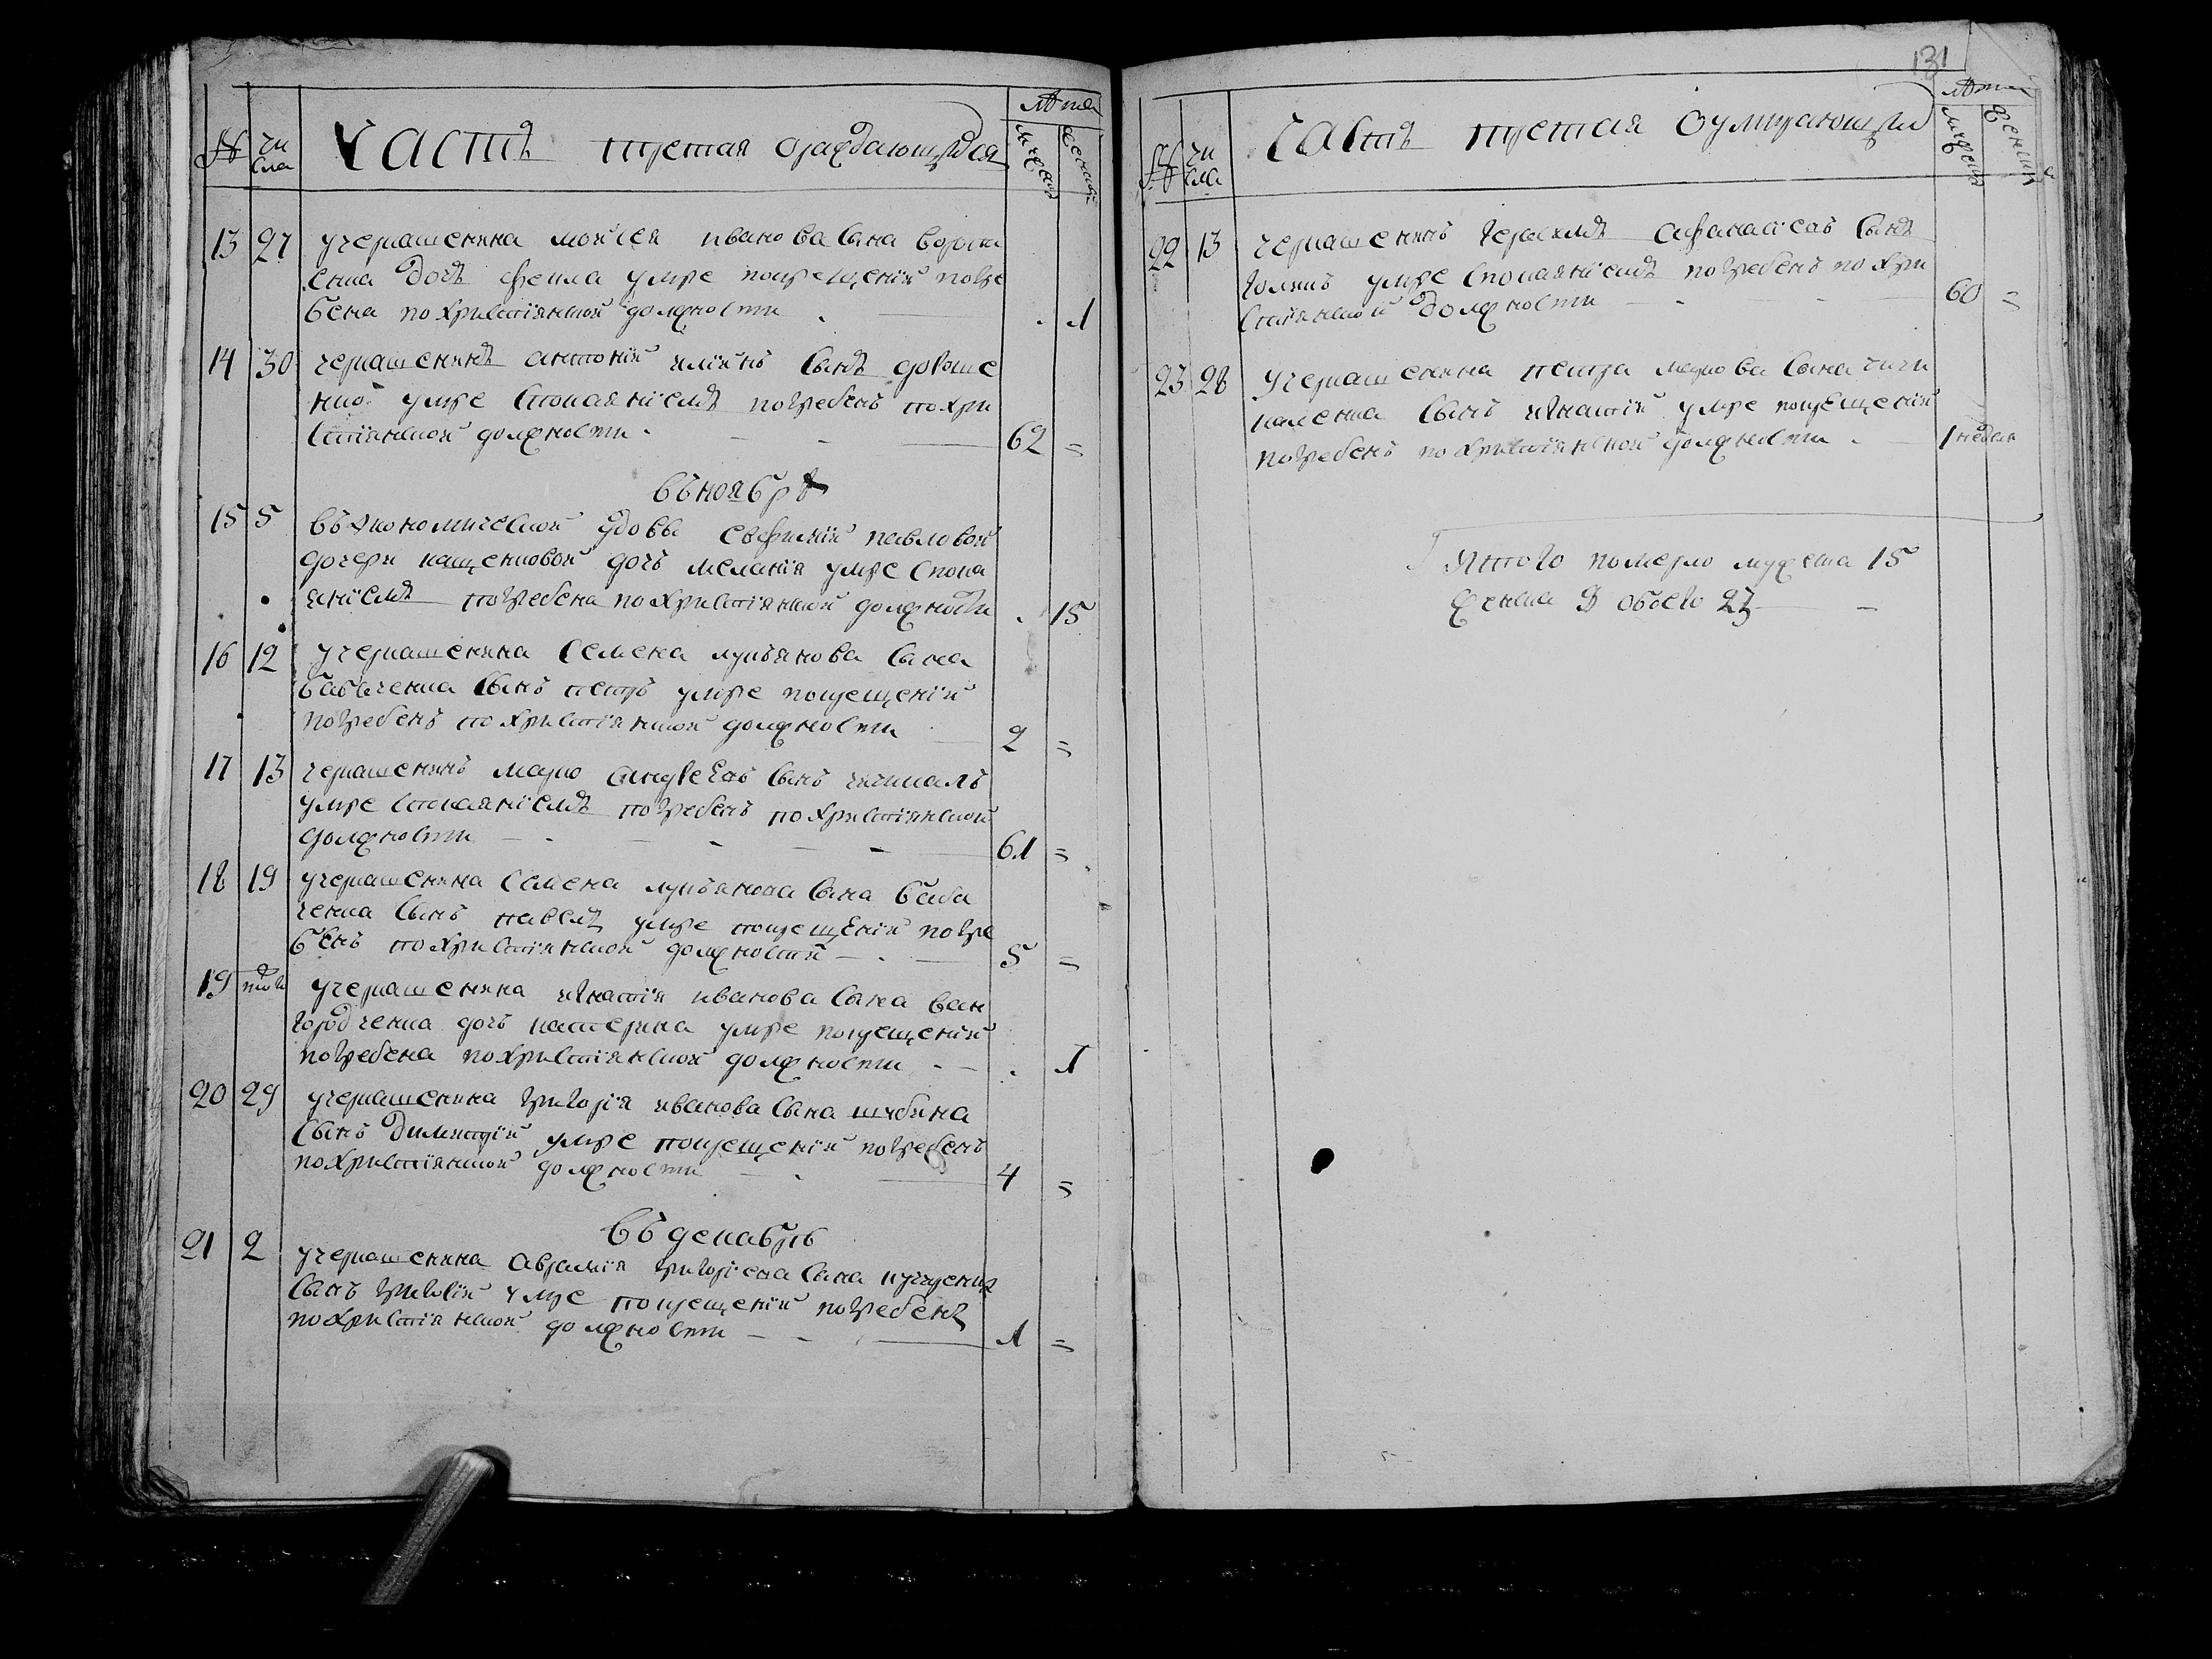 № чи
сла
Часть третая ораждающихся
лѣта
мужеска
женска
13 27 учеркашенина моисея иванова сына
енка дочь фекла умре покрещенїи погре
бена похристїянской должности . 1
14 30 черкашенинъ антонїй илїинъ сынъ
умре спокаянїемъ погребенъ похри
стїянской должности 62 =
въноябрѣ
15 5 въэкономической удовы евфимїи павловой
дочери кащенковой дочь меланїя умре спока
янїемъ погребена похристїянской должности . 15
16 12 учеркашенина семена лукьянова сына
бабыченка сынъ петръ умре покрещенїи
погребенъ похристїянской должности 2 =
17 13 черкашенинъ марко андреевъ сынъ чичикалъ
умре спокаянїемъ погребенъ похристїянской
должности 61 =
18 19 учеркашенина семена лукьянова сына баби
ченка сынъ павелъ умре покрещенїи погре
бенъ похристїянской должности 5 =
19 учеркашенина игнатїя иванова сына вен
городченка дочь катерина умре покрещенїи
погребена похристїянской должности . 1
20 29 учеркашенина григорїя иванова сына шибина
сынъ димитрїй умре покрещенїи погребенъ
похристїянской должности 4 =
въдекабрѣ
21 2 учеркашенина аврамїя григорїева сына
сынъ умре покрещенїи погребенъ
похристїянской должности 1 =
131
№ чи
сла
Часть третая оумирающихъ
лѣта
мужеска
женска
22 13 черкашенинъ герасимъ афанасїевъ сынъ
умре спокаянїемъ погребенъ похри
стїянской должности 60 =
23 28 учеркашенина петра маркова сына чичи
каленка сынъ игнатїй умре покрещенїи
погребенъ похристїянской должности 1 неделя
Итого померло мужеска 15
женска обоего 23